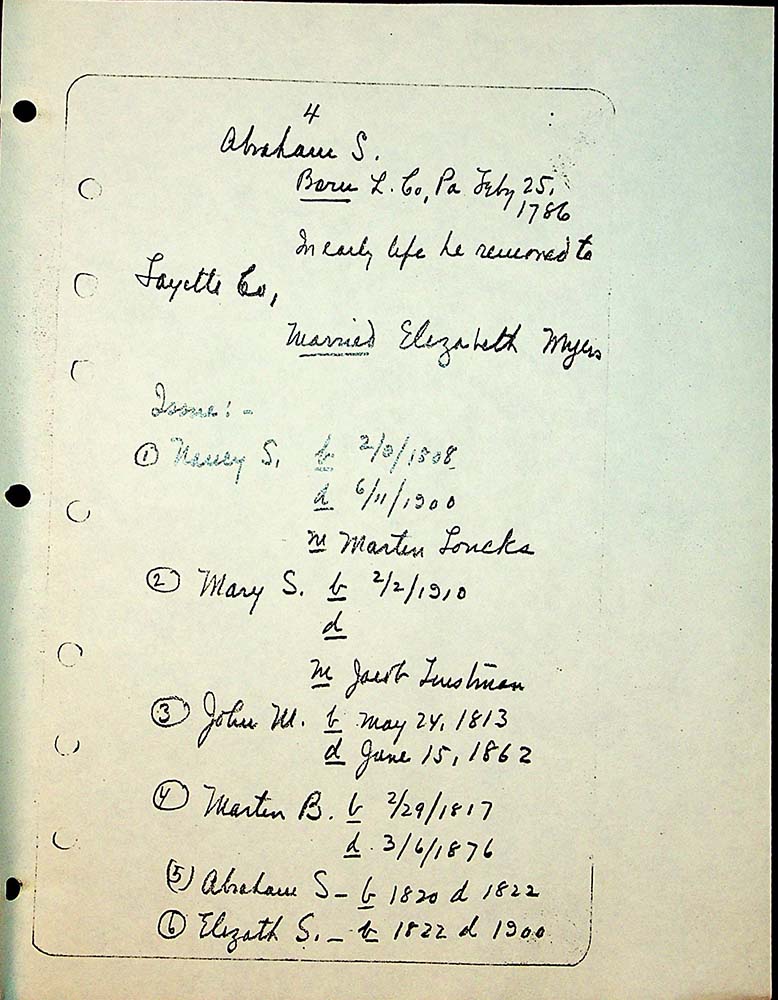 4
Abraham S.
Born L. Co, Pa Feby 25,
1786
In early life he removed to
Fayette Co,
Married Elizabeth Myers
Issue:-
① Nancy S. b 2/3/1808
d 6/11/1900
m Martin Loucks
② Mary S. b 2/2/1910
d
m Jacob
③ John M. b May 24, 1813
d June 15, 1862
④ Martin B. b 2/29/1817
d. 3/6/1876
⑤ Abraham S - b 1820 d 1822
⑥ Elizath S. - b 1822 d 1900